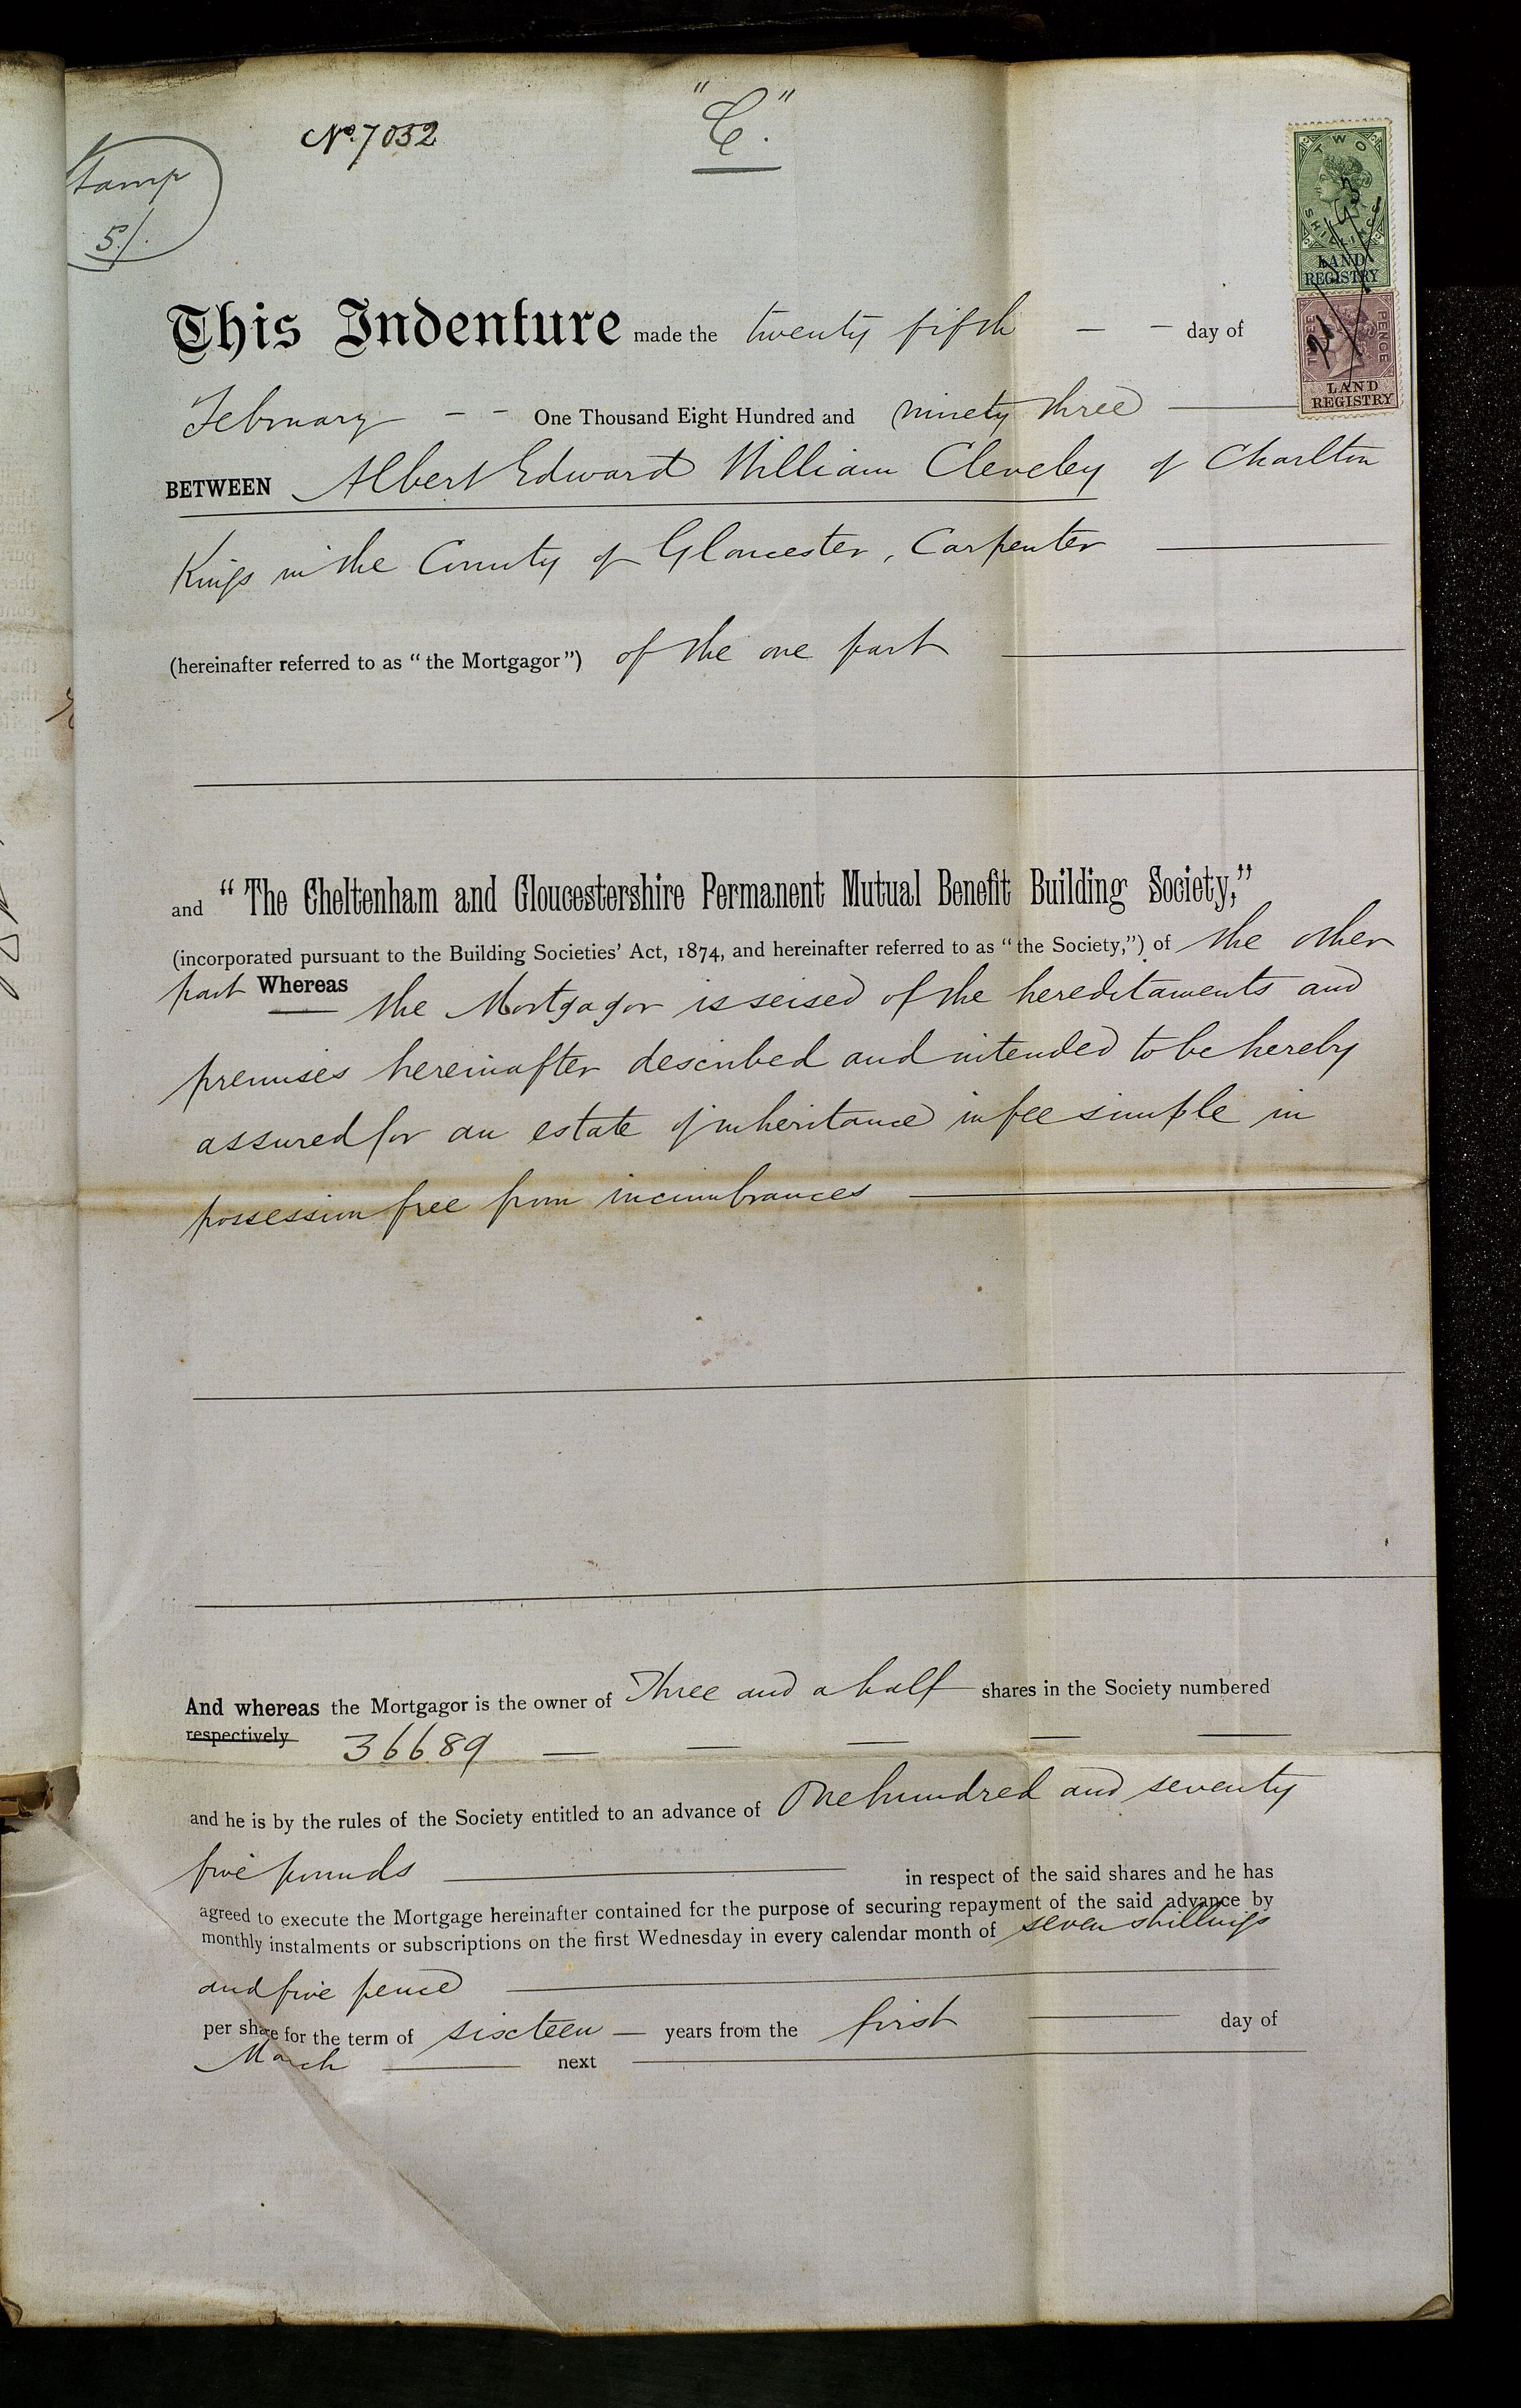 "C."
No. 7032
Stamp
5/.
TWO
SHILLINGS
LAND
REGISTRY
THREE PENCE
LAND
REGISTRY
This Indenture made the twenty fifth — — day of
February — — One Thousand Eight Hundred and ninety three —
BETWEEN Albert Edward William Cleveley of Charlton
Kings in the County of Gloucester, Carpenter —
(hereinafter referred to as "the Mortgagor") of the one part —
and "The Cheltenham and Gloucestershire Permanent Mutual Benefit Building Society,"
(incorporated pursuant to the Building Societies' Act, 1874, and hereinafter referred to as "the Society,") of the other
part Whereas the Mortgagor is seised of the hereditaments and
premises hereinafter described and intended to be hereby
assured for an estate of inheritance in fee simple in
possession free from incumbrances —
And whereas the Mortgagor is the owner of Three and a half shares in the Society numbered
respectively 36689 — — — — —
and he is by the rules of the Society entitled to an advance of One hundred and seventy
five pounds — in respect of the said shares and he has
agreed to execute the Mortgage hereinafter contained for the purpose of securing repayment of the said advance by
monthly instalments or subscriptions on the first Wednesday in every calendar month of seven shillings
and five pence —
per share for the term of sixteen — years from the first — day of
March — next —